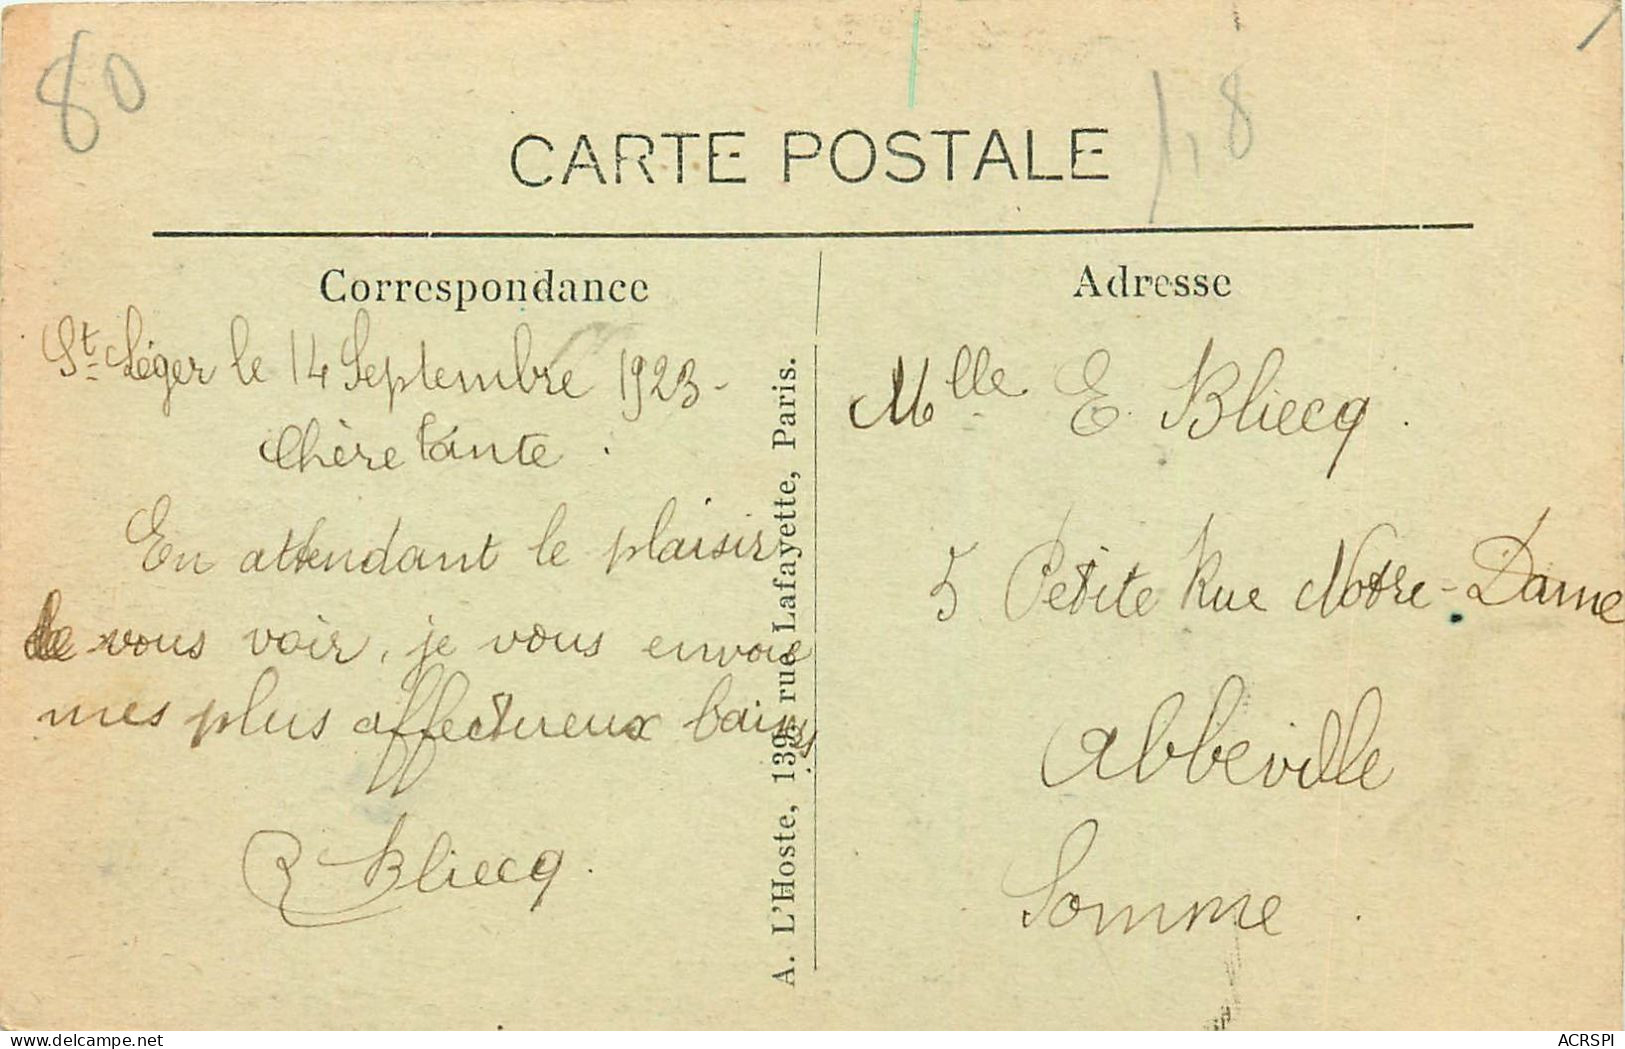 80
1,8
CARTE POSTALE
Correspondance
St Léger le 14 Septembre 1923-
Chère tante.
En attendant le plaisir
de vous voir, je vous envoie
mes plus affectueux baisers.
R Bliecq.
A. L'Hoste, 139, rue Lafayette, Paris.
Adresse
Mlle E. Bliecq.
5 Petite Rue Notre-Dame
Abbeville
Somme.
www.delcampe.net
ACRSPI